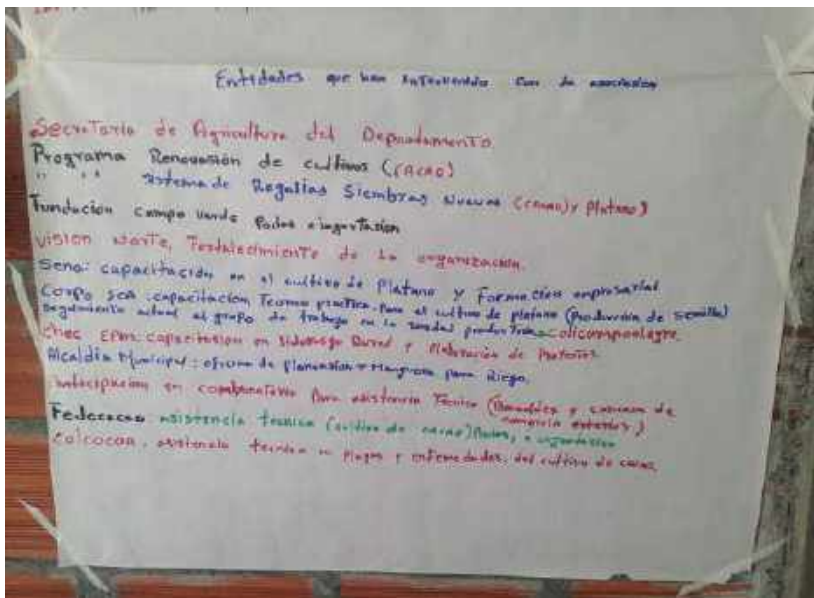 Entidades que han intervenido con la asociacion
Secretaria de Agricultura del Departamento
Programa Renovasión de cultivos (CACAO)
" " Sistema de Regalias Siembras Nuevas (cacao) y Platano)
Fundación Campo Verde Podas e ingertasion
Vision Norte, Fortalecimiento de la organización.
Sena: capacitación en el cultivo de Platano y Formación empresarial
Corpo ica: capacitacion Teorico practica. Para el cultivo de platano (Producción de Semilla)
seguimiento actual al grupo de trabajo en la unidad productiva
Chec EPM: capacitasion en Rural y Elaboración de Proyectos
Alcaldia Municipal: oficina de Planeasion Manguera para Riego.
Participacion en para asistencia Tecnica (y camara de
comercio exterior)
Fedecacao asistencia tecnica (cultivo de cacao) Podas, e
Colcocoa, asistencia tecnica en Plagas y enfermedades, del cultivo de cacao,